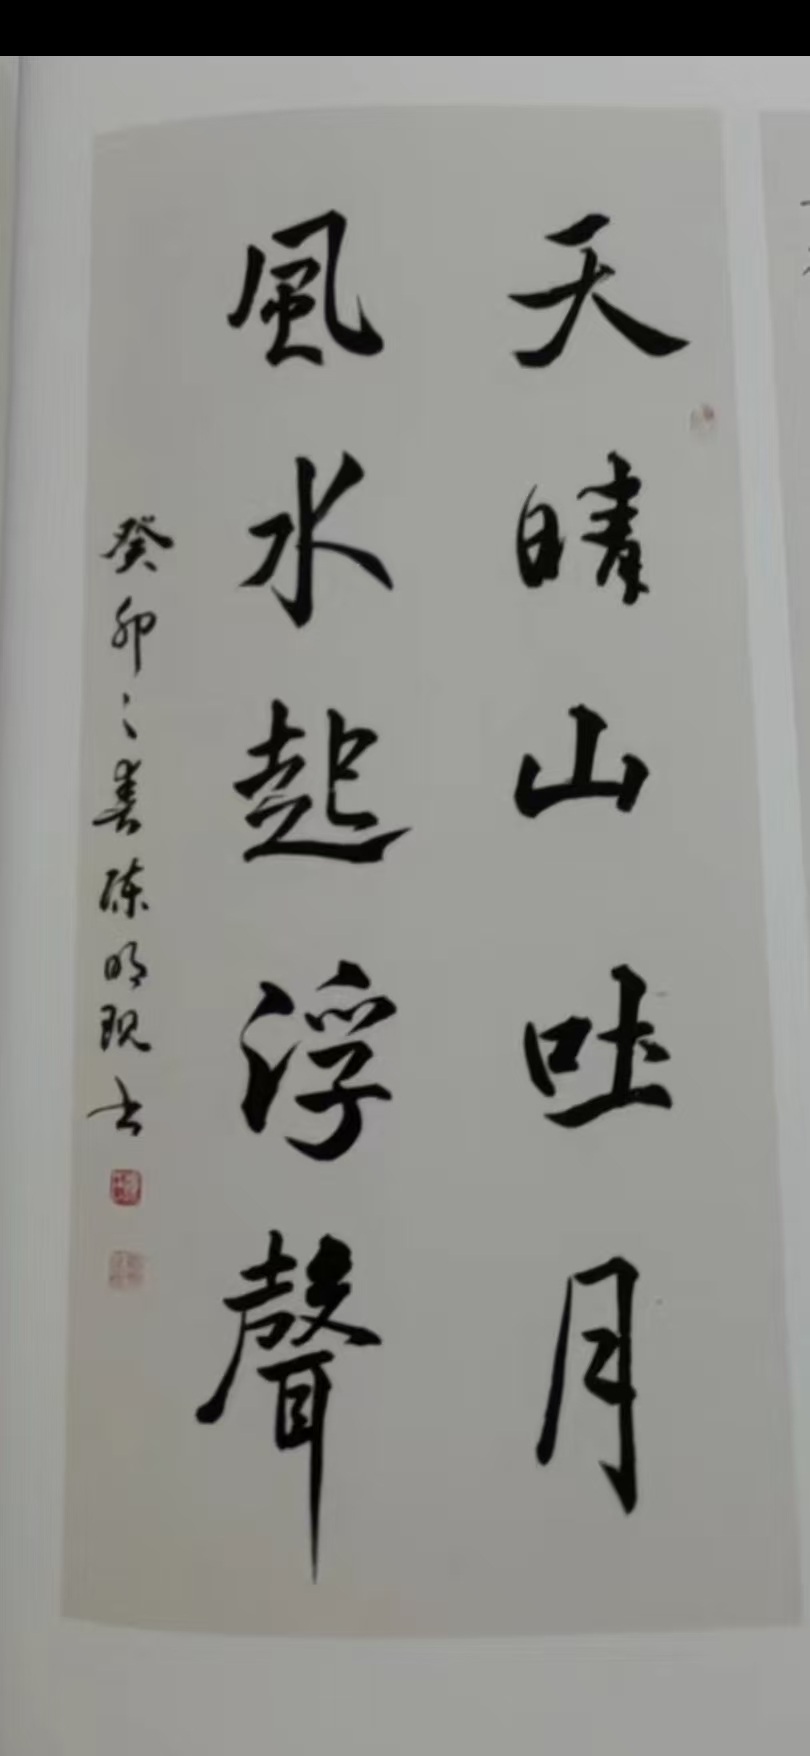 天晴山吐月
風水起浮聲
癸卯之春陳明現书